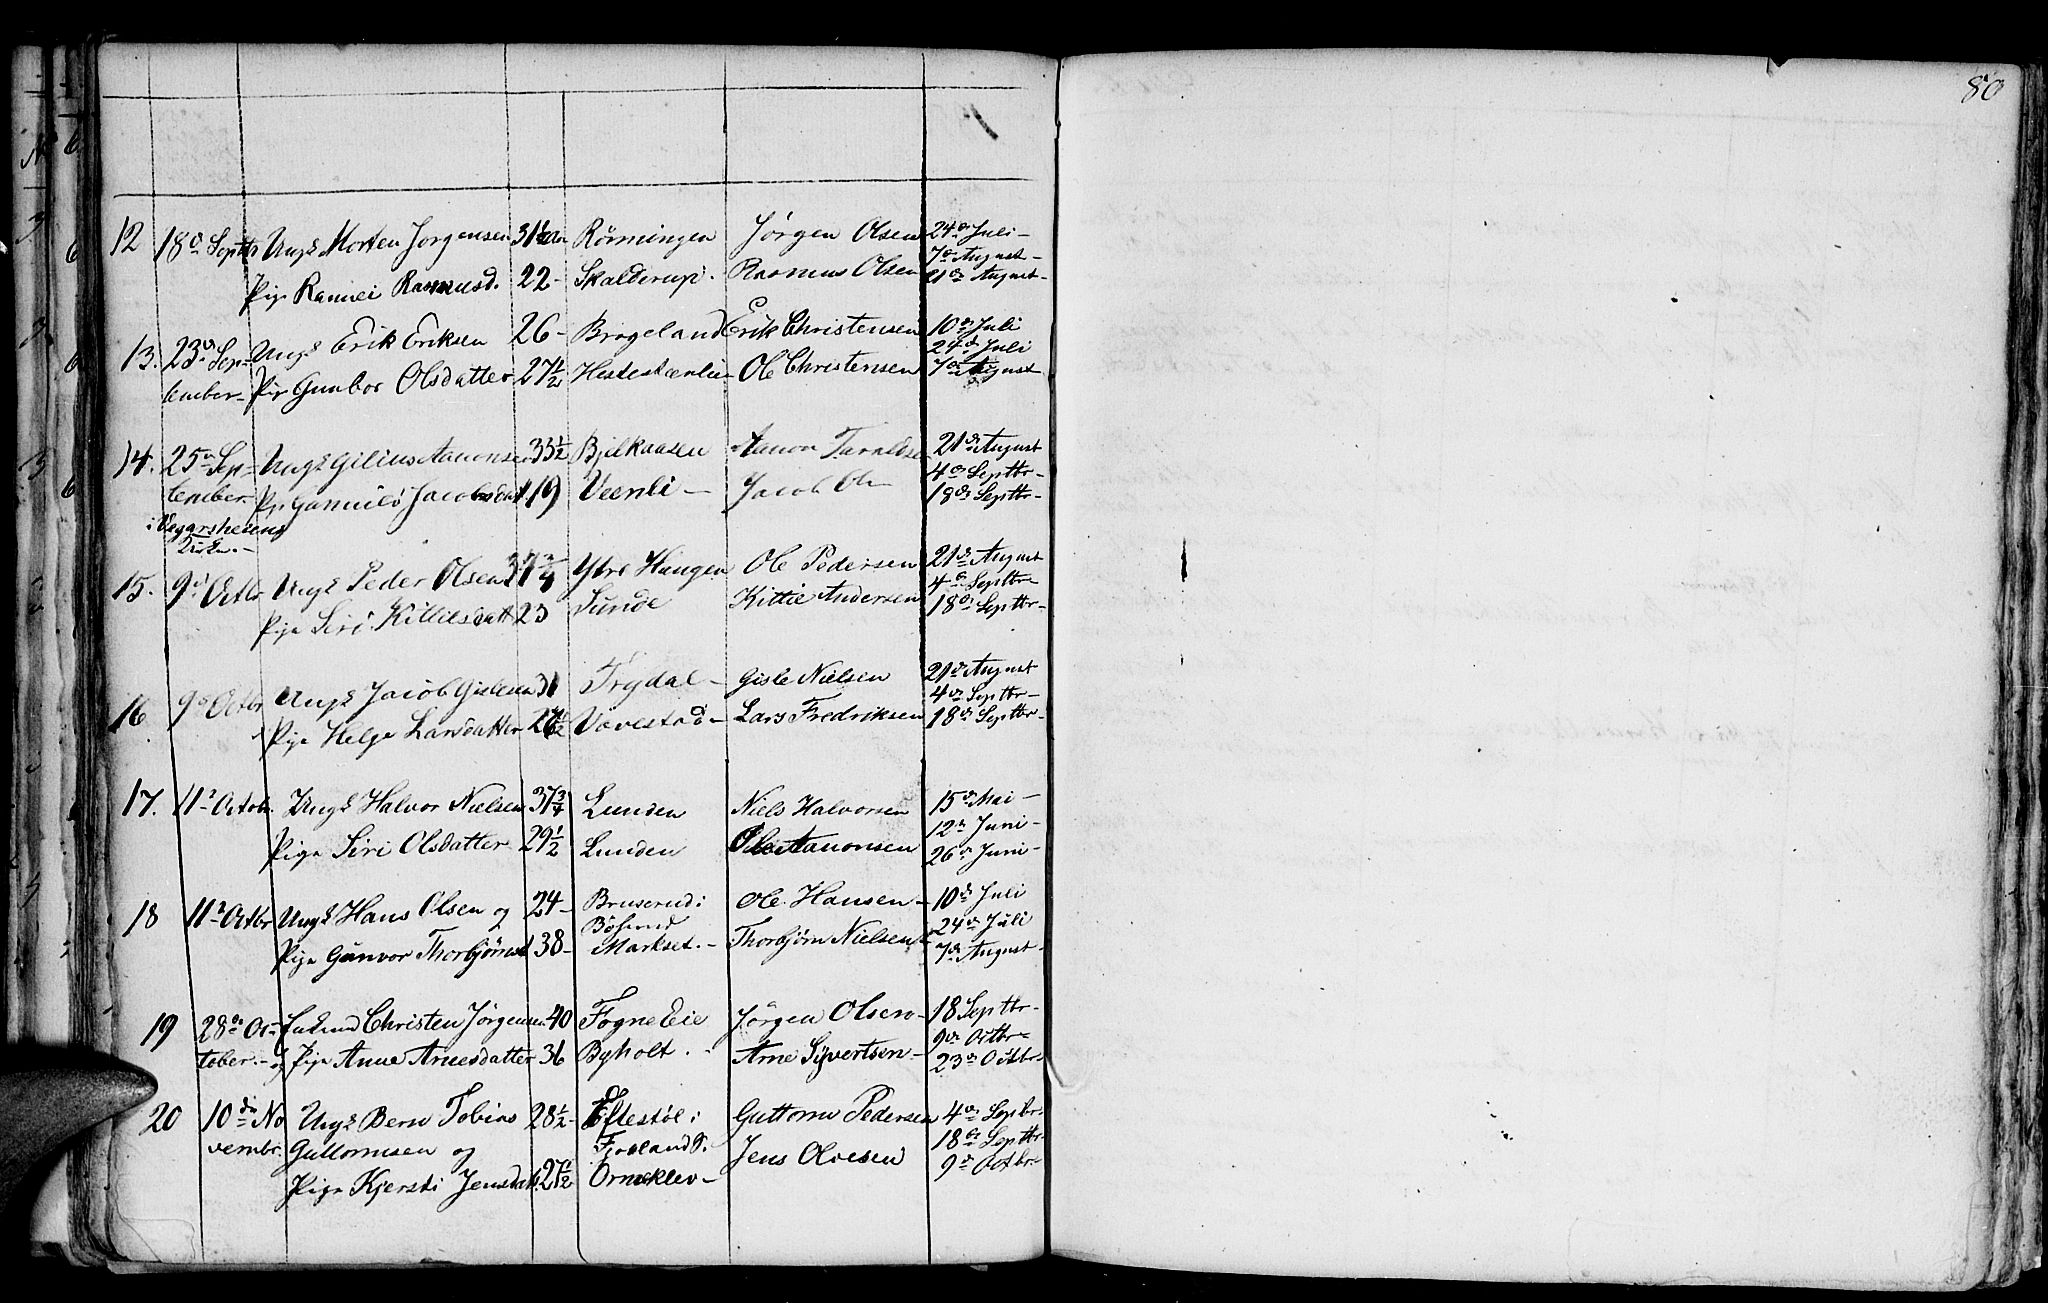 80
12 18de Septbr Ungk Morten Jørgensen 31½ Aar Rörningen Jørgen Olsen 24de Juli –
7de August –
Pige Rannei Rasmusd. 22 – Skalderup. Rasmus Olsen 21de August –
13. 23de Sep= Ungk Erik Eriksen 26 – Brogeland Erik Christensen 10de Juli
24de Juli
tember – Pige Gunbor Olsdatter 27½ Hestestærlie – Ole Christensen 7de August
14. 25de Sep= Ungk Gilius Aanonsen 33½ Bjelkaasen Aanon Taraldsen 21de August
4de Septbr –
tember – Pige Gunnild Jacobsdat 19 Veenli – Jacob Ols 18de Septbr –
i Vegarsheiens
Kirke. –
15. 9de Octbr Ungk Peder Olsen 37¾ Ytre Haugen Ole Pedersen 21de August
4de Septbr –
Pige Siri Kittilsdatt 23 Sunde Kittil Andersen 18de Septbr –
16. 9de Octbr Ungk Jacob Gislesen 31 Trydal – Gisle Nielsen 21de August
4de Septbr –
Pige Helge Larsdatter 27½ Vovestad – Lars Fredriksen 18de Septbr –
17. 11te Octobr. Ungk Halvor Nielsen 37¾ Lunden Niels Halvorsen 15de Mai –
12de Juni –
Pige Siri Olsdatter 29½ Lunden Ole Aanonsen 26de Juni –
18 11te Octbr Ungk Hans Olsen og 24 – Bruserud i Ole Hansen – 10de Juli
24de Juli
Pige Gunvor Thorbjörnsd 38 – Markset. – Thorbjörn Nielsen 7de August –
19 28de Oc= Enkemd Christen Jørgensen 40 Fogne Eie Jørgen Olsen – 18 Septbr –
9de Octbr –
tober. – og Pige Anne Arnesdatter 36 Byholt. – Arne Syvertsen – 23de Octbr –
20 10de No Ungk Bern Tobias 28½ – Eftestöl i Guttorm Pedersen 4de Sepbr –
vembr. Guttormsen og Froland S. 18de Septbr –
Jens Olvesen 9de Octbr –
Pige Kjersti Jensdat. 27½ Ormeklev –